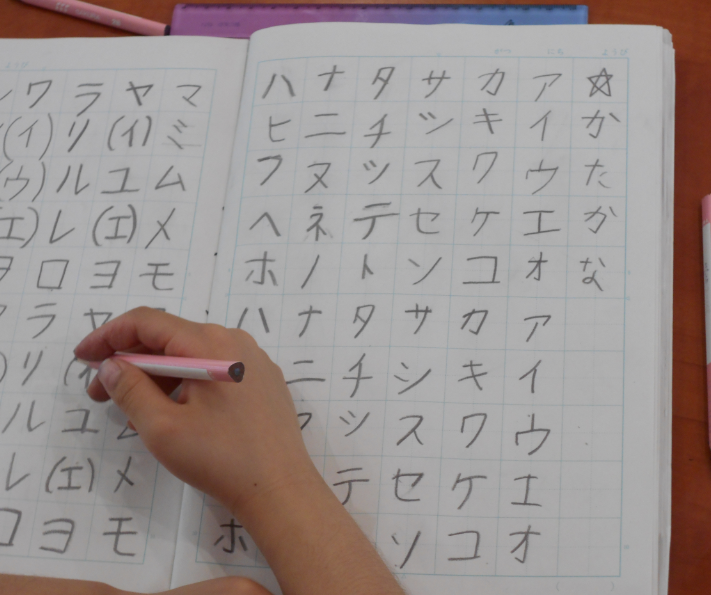 ☆かたかな
アイウエオアイウエオ
カキクケコカキクケコ
サシスセソサシスセソ
タチツテトタチツテ
ナニヌネノナニ
ハヒフヘホハホ
マミムメモメモ
ヤ(イ)ユ(エ)ヨヤ(イユ(エ)ヨ
ラリルレロラリルレロ
ワ(イ)(ウ)(エ)ヲ